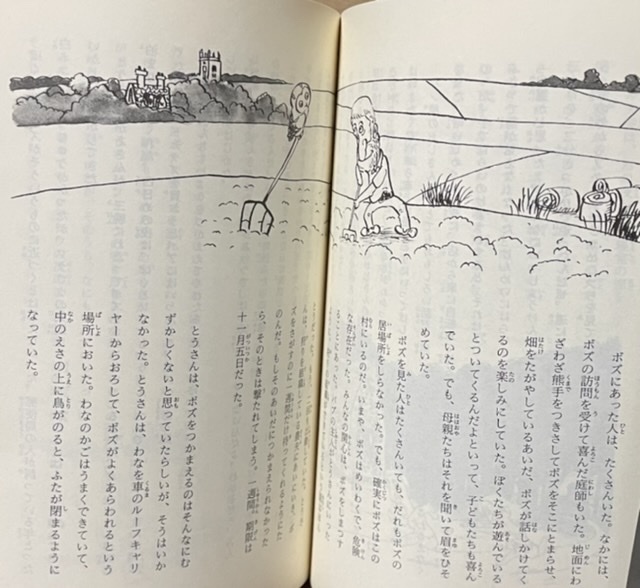 ボズにあった人は、たくさんいた。なかには、
ボズの訪問を受けて喜んだ庭師もいた。地面にわ
ざわざ熊手をつきさしてボズをそこにとまらせ、
畑をたがやしているあいだ、ボズが話しかけてく
るのを楽しみにしていた。ぼくたちが遊んでいる
とついてくるんだよといって、子どもたちも喜ん
でいた。でも、母親たちはそれを聞いて眉をひそ
めていた。
ボズを見た人はたくさんいても、だれもボズの
居場所をしらなかった。でも、確実にボズはこの
村にいるのだ。いまや、ボズはめいわくで、危険
な存在だった。みんなの関心は、ボズをしまつす
ることに
ズをさがすのに一週間だけ待ってくれるよう
のんだ。もしそのあいだにつかまえられなかった
ら、そのときは撃たれてしまう。一週間。期限は
十一月五日だった。
とうさんは、ボズをつかまえるのはそんなにむ
ずかしくないと思っていたらしいが、そうはいか
なかった。とうさんは、わなを車のルーフキャリ
ヤーからおろして、ボズがよくあらわれるという
場所においた。わなのかごはうまくできていて、
中のえさの上に鳥がのると、ふたが閉まるように
なっていた。